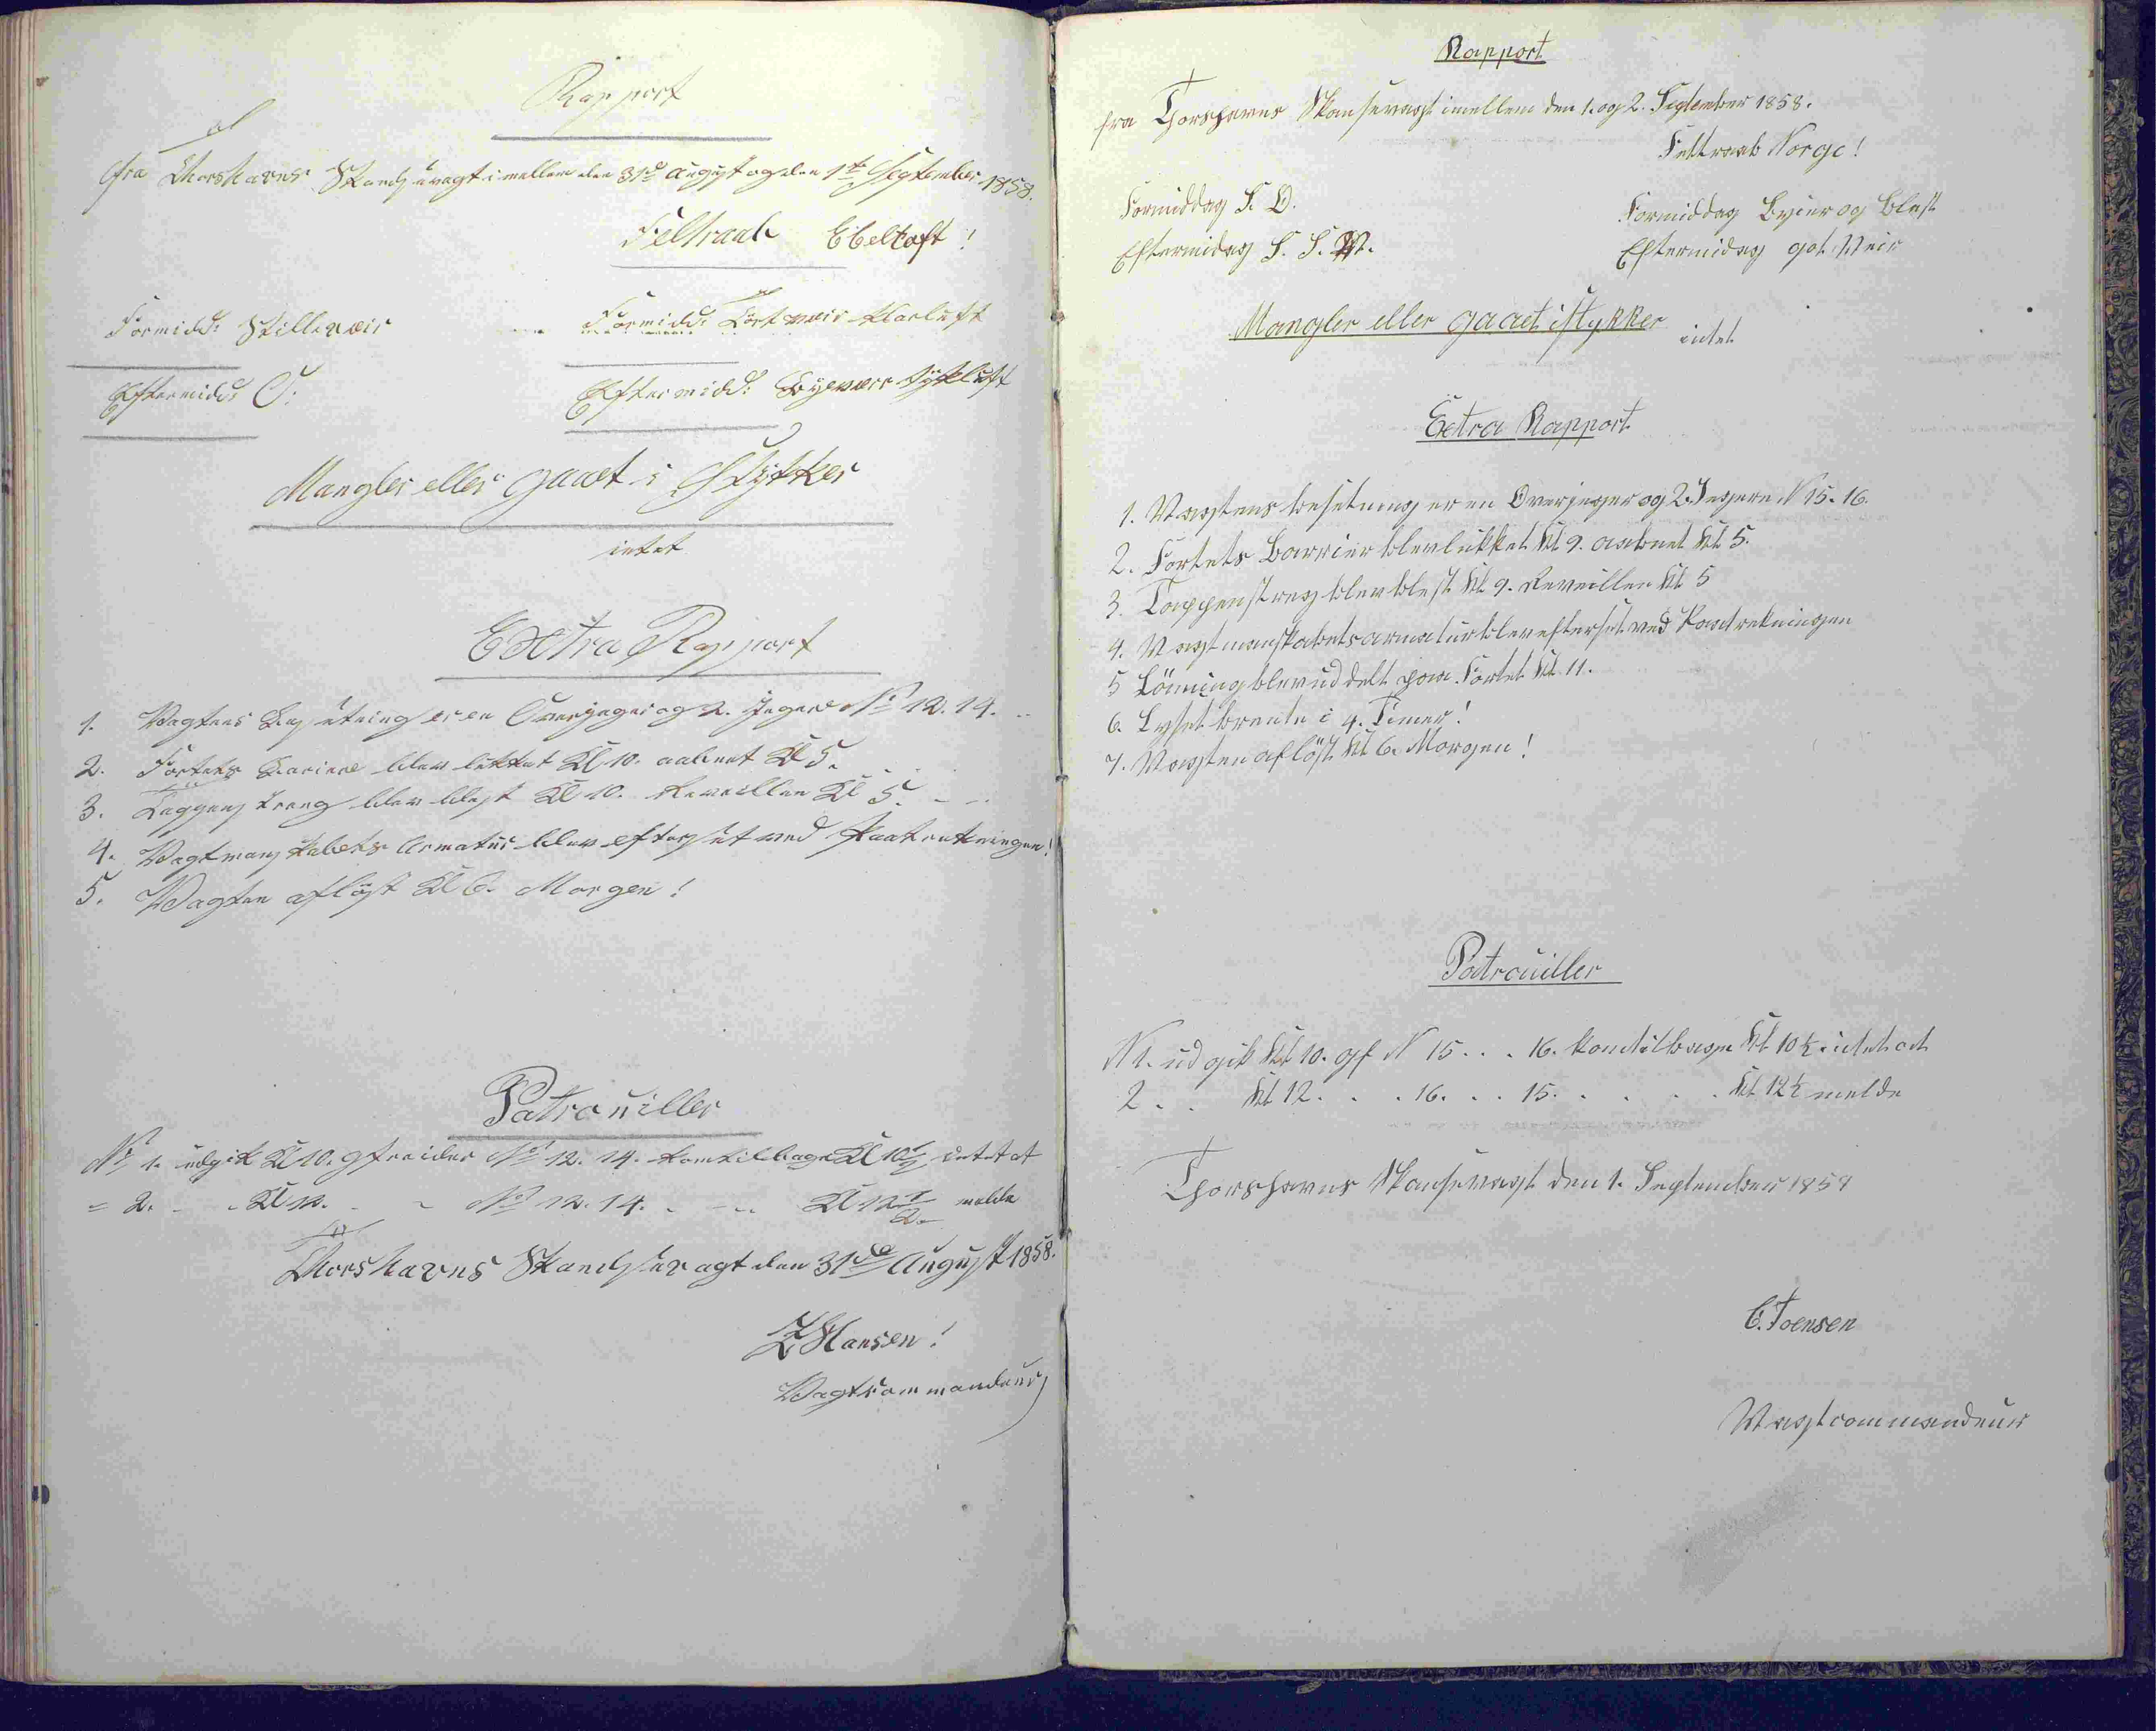 Rapport
fra Thorshavns Skandsevagt imellem den 31te August og den 1ste September 1858.
Feltraab Ebeltoft!
Formidd: Stilleveir
Formidd: Tört veir Klarluft
Eftermidd: O:
Eftermidd: Byeveir Tÿkluft
Mangler eller gaaet i Stÿkker
intet
Extra Rapport
1. Vagtens Besetning er en Overjeger og 2. Jegere No 12. 14.
2. Fortets Bariere blev lukket Kl 10. aabnet Kl 5.
3. Tappenstreng blev blest Kl 10. Reveillen Kl 5.
4. Vagtmanskabets Armatur blev efterset ved Paatrekningen!
5. Vagten aflöst Kl 6. Morgen!
Patrouiller
No 1. udgik Kl 10. gfreider No 12. 14. kom tilbage Kl 10 1/2 intet at
= 2. Kl 12. No 12. 14. Kl 12 1/2 melde
Thorshavns Skandsevagt den 31de August 1858.
Z Hansen!
Vagtcommandeur
Rapport
fra Thorshavns Skansevagt imellem den 1. og 2. September 1858.
Feltraab Norge!
Formiddag S. O.
Formiddag Byier og Blest
Eftermidag S. S. W.
Eftermidag got Veir
Mangler eller gaaet istykker intet
Extra Rapport
1. Vagtens besetning er en Overjeger og 2. Jegere N 15. 16.
2. Fortets Barrier blev lukket Kl 9. aabnet Kl 5.
3. Tappenstreg blev blest Kl 9. Reveillen Kl 5
4. Vagtmanskabets armatur blev efterset ved Paatrekningen
5 Lönning blev uddelt paa Fortet Kl 11.
6. Lyset brente i 4. Timer!
7. Vagten aflöst Kl 6. Morgen!
Patrouiller
N 1. udgik Kl 10. gf N 15 . . . 16. kom tilbage Kl 10 1/2 intet at
2 . . Kl 12 . . . 16. . . 15. . . . . Kl 12 1/2 melde
Thorshavns Skansevagt den 1. September 1858
C. Joensen
Vagtcommandeur